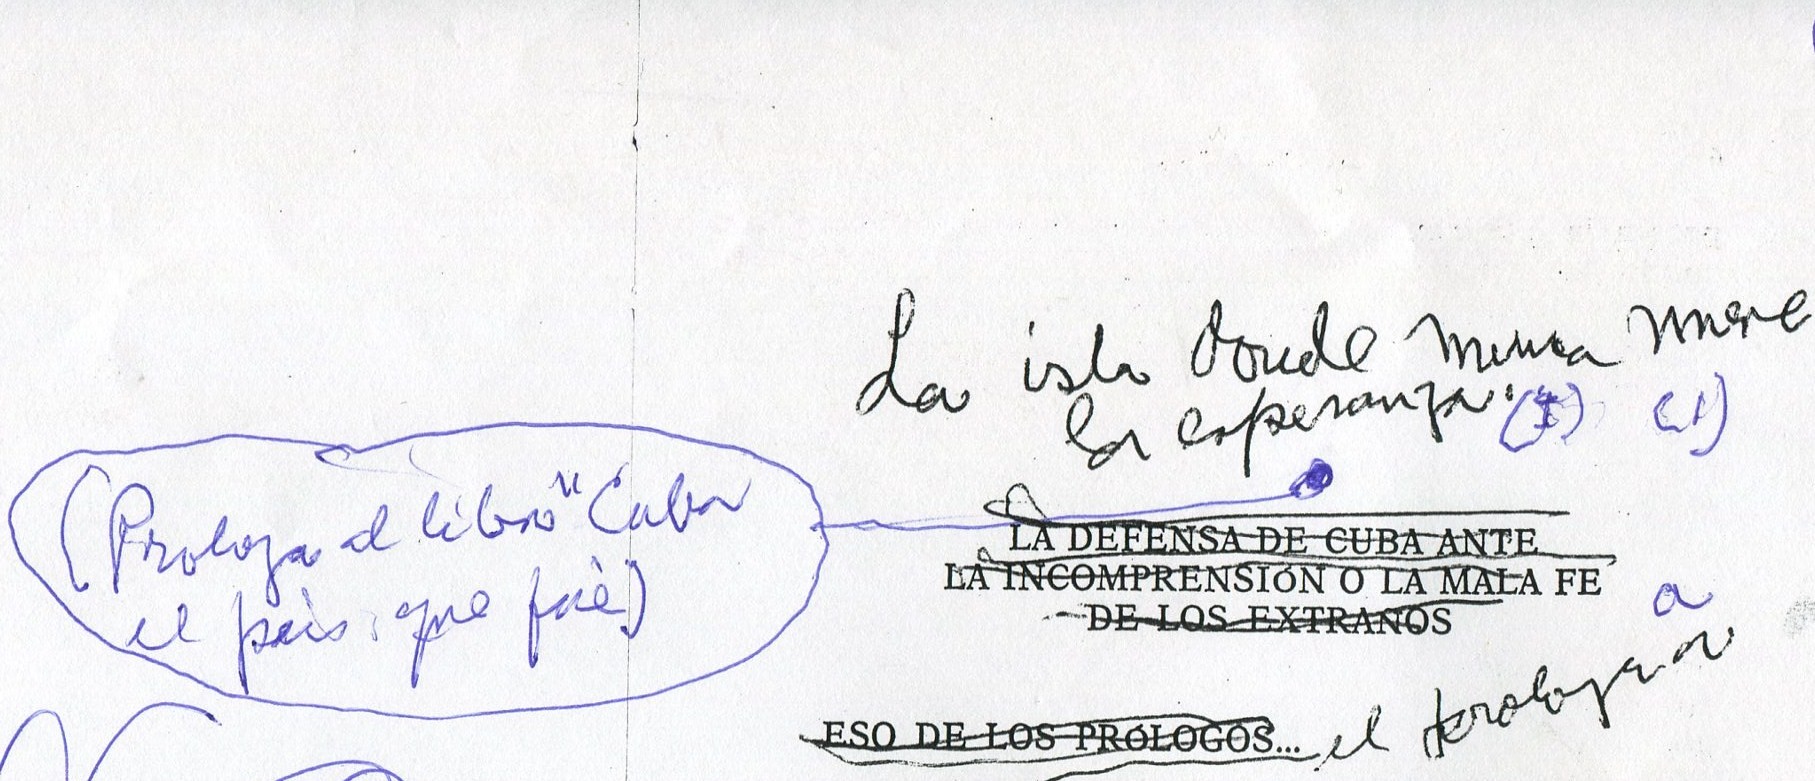 La isla donde nunca muere
la esperanza. (1) (1)
(Prologo al libro "Cuba
el pais que fué)
LA DEFENSA DE CUBA ANTE
LA INCOMPRENSIÓN O LA MALA FE
DE LOS EXTRAÑOS
a
ESO DE LOS PROLOGOS... el